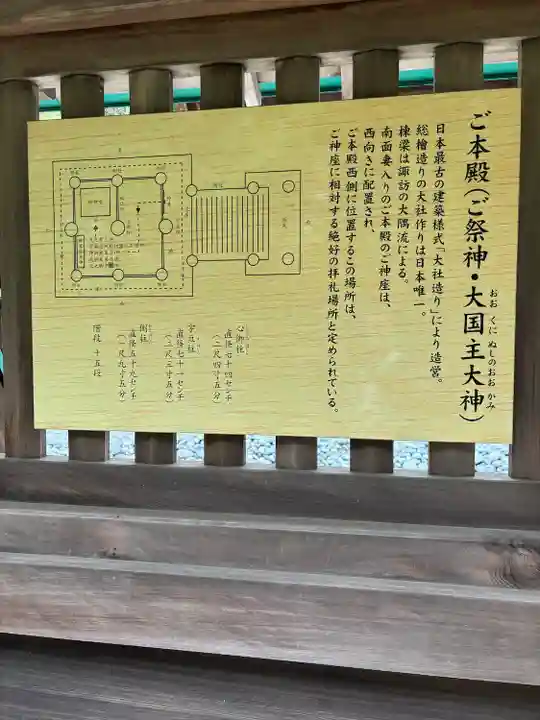 ご本殿（ご祭神・大国主大神）
おおくにぬしのおおかみ
日本最古の建築様式、「大社造り」により造営。
総檜造りの大社作りは日本唯一。
棟梁は諏訪の大隅流による。
南面妻入りのご本殿のご神座は、
西向きに配置され、
ご本殿西側に位置するこの場所は、
ご神座に相対する絶好の拝礼場所と定められている。
心御柱
直径七十四センチ
（二尺四寸五分）
宇豆柱
直径七十一センチ
（二尺三寸五分）
側柱
直径五十九センチ
（一尺九寸五分）
階段 十五段